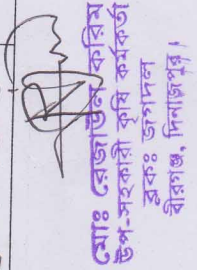 মোঃ রেজাউল করিম
উপ-সহকারী কৃষি কর্মকর্তা
ব্লকঃ জগদল
বীরগঞ্জ, দিনাজপুর।